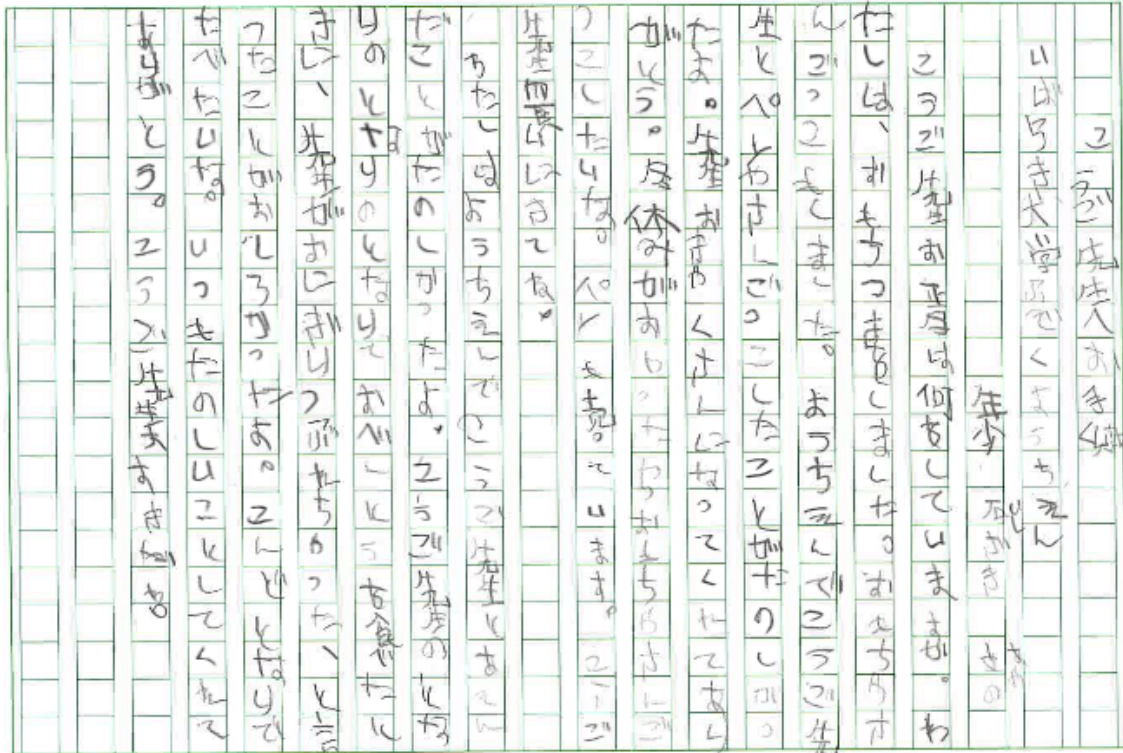 こうご先生へお手紙
いばらき大学ふぞくようちえん
年少 石がき あやの
こうご先生お正月は何をしていますか。わ
たしは、おもちつきをしました。おもちやさ
んごっこもしました。ようちえんでこうご先
生とぺとやさんごっこしたことがたのしかっ
たよ。先生おきゃくさんになってくれてあり
がとう。冬休みがおわったらおもちやさんご
っこしたいな。ぺとも売っています。こうご
先生買いにきてね。
わたしはようちえんでこうご先生とあそん
だことがたのしかったよ。こうご先生のとな
りのとなりのとなりでおべんとう食べたと
きに、先生がおにぎりつぶれちゃった、と言
ったことがおもしろかったよ。こんどとなりで
たべたいな。いつもたのしいことしてくれて
ありがとう。こうご先生大すきだよ